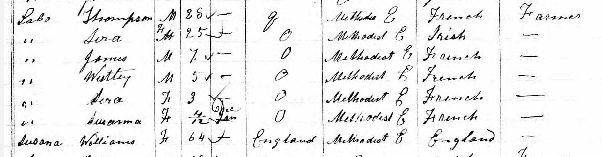 Labo Thompson M 28 — q Methodis E French Farmer
" Sera F 25 — O Methodist E Irish —
" James M 7 — O Methodist E French —
" M 5 — O Methodist E French —
" Sera F 3 — O Methodist E French —
" Susanna F Dec Jan O Methodist E French —
Susana Williams F 64 England Methodist E England —